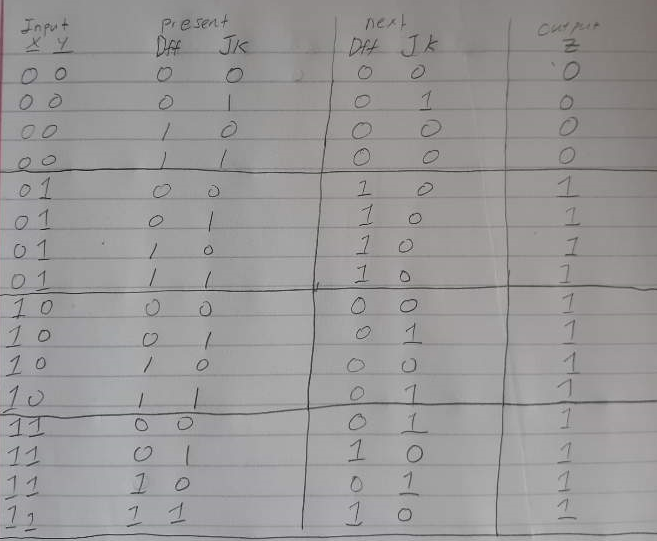 Input present next output
X Y Dff JK Dff JK Z
0 0 0 0 0 0 0
0 0 0 1 0 1 0
0 0 1 0 0 0 0
0 0 1 1 0 0 0
0 1 0 0 1 0 1
0 1 0 1 1 0 1
0 1 1 0 1 0 1
0 1 1 1 1 0 1
1 0 0 0 0 0 1
1 0 0 1 0 1 1
1 0 1 0 0 0 1
1 0 1 1 0 1 1
1 1 0 0 0 1 1
1 1 0 1 1 0 1
1 1 1 0 0 1 1
1 1 1 1 1 0 1